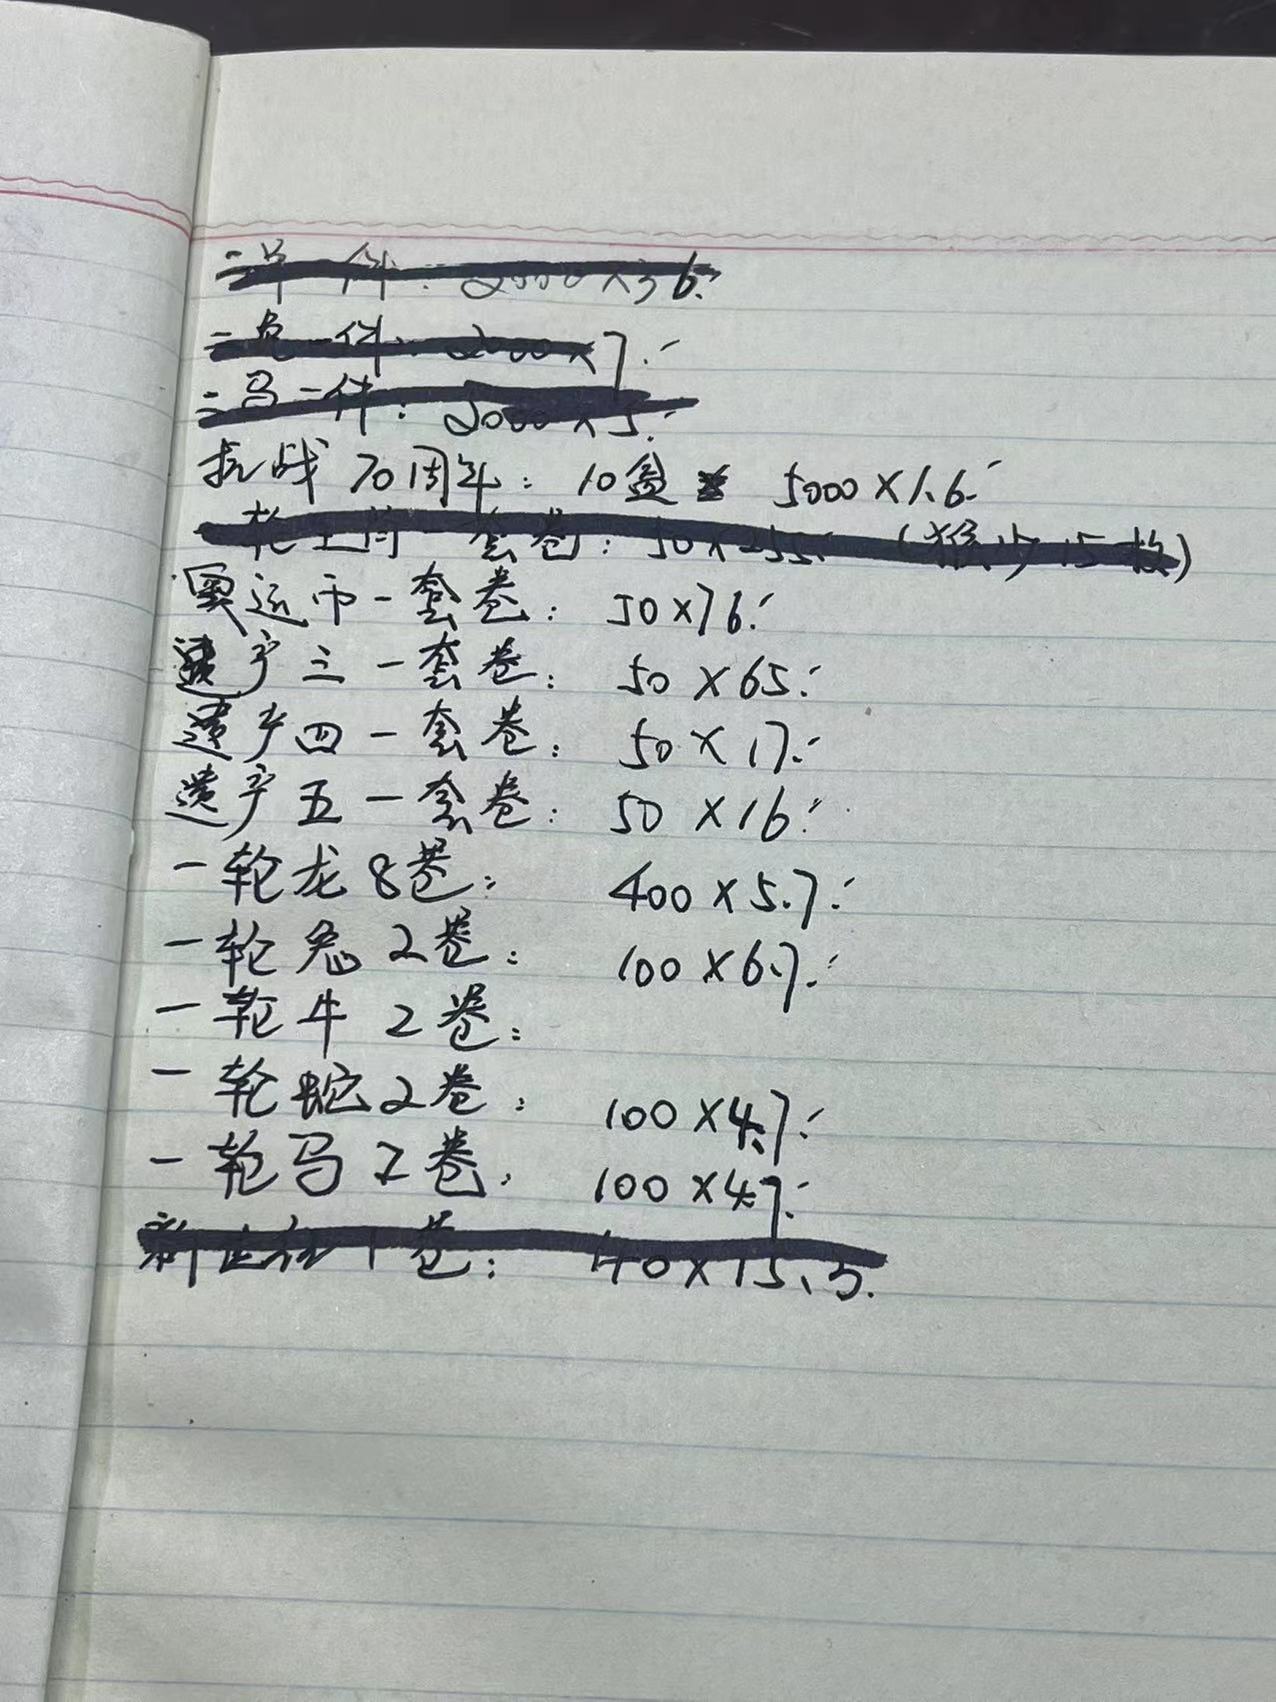 二羊一件：2000×36.
二兔一件：2000×7.
二马一件：2000×5.
抗战70周年：10盒 5000×1.6.
套卷：50×255. (猴少15枚)
奥运币一套卷：50×76.
遗产三一套卷：50×65.
遗产四一套卷：50×17.
遗产五一套卷：50×16.
一轮龙8卷：400×5.7.
一轮兔2卷：100×6.7.
一轮牛2卷：
一轮蛇2卷：100×4.7.
一轮马2卷：100×4.7.
1卷：40×15.5.